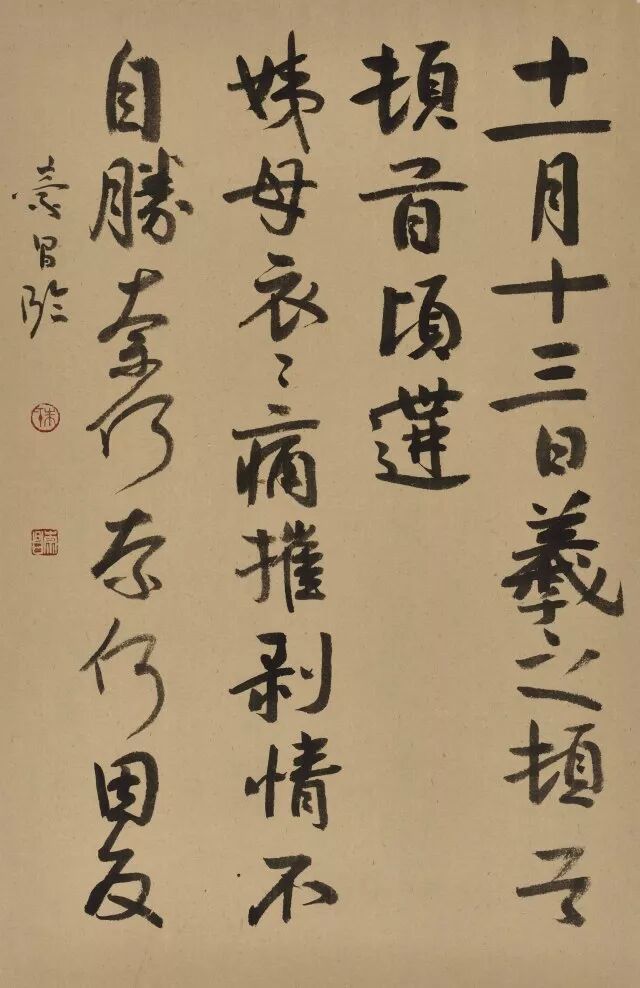 十一月十三日羲之頓首
頓首頃遘
姨母哀〻痛摧剝情不
自勝奈何奈何因反
昌臨